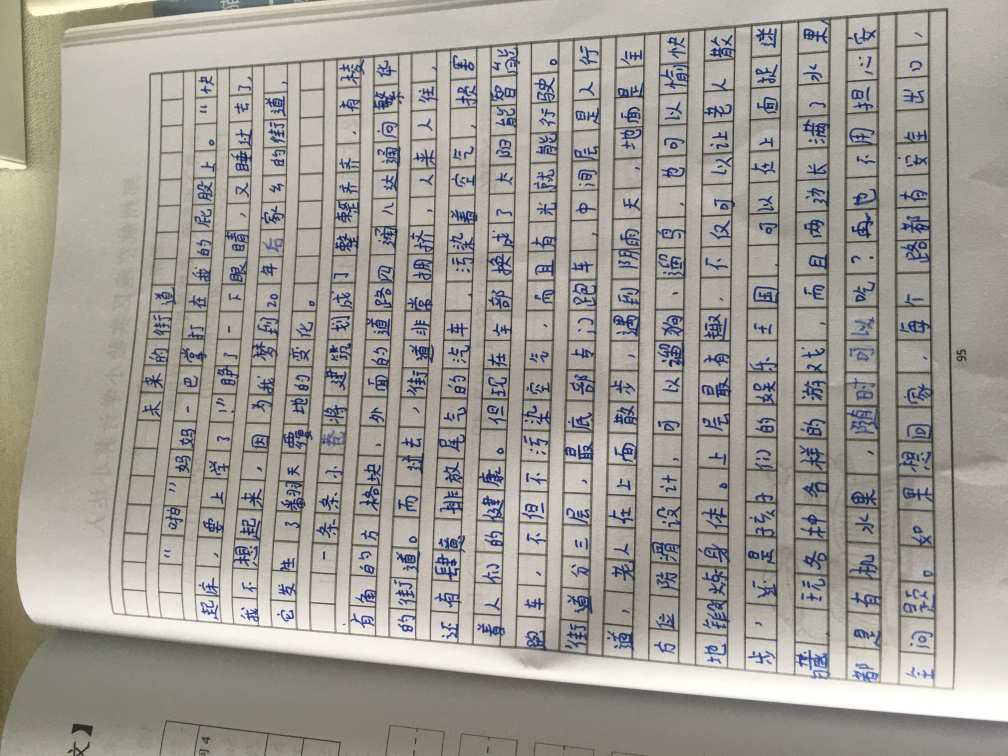 未来的街道
“啪”妈妈一巴掌打在我的屁股上。“快
起床,要上学了!”睁了一下眼睛,又睡过去了,
我不想起来,因为我梦到20年后家乡的街道,
它发生了翻天覆地的变化。
一条条小巷将建筑划成了整整齐齐,有棱
有角的方格块,外面的道路四通八达通向繁华
的街道。而过去,街道非常拥挤,人来人往,
还有肆意排放尾气的汽车,污染着空气,损害
着人们的健康。但现在全部换成了太阳能智能
跑车,不但不污染空气,而且有光就能行驶。
街道分三层,最底部专门跑车,中间层是人行
道,老人在上面散步,遇到阴雨天,地面是全
方位防滑设计,可以遛狗、遛鸟,也可以愉快
地锻炼身体。上层最有趣,不仅可以让老人散
步,还是孩子们的娱乐王国,可以在上面捉迷
藏,玩各种各样的游戏,而且两边长满了水果,
都是有机水果,随时可以吃?再也不用担心安
全问题。如果想回家,每个路都有安全出口,
95
文】